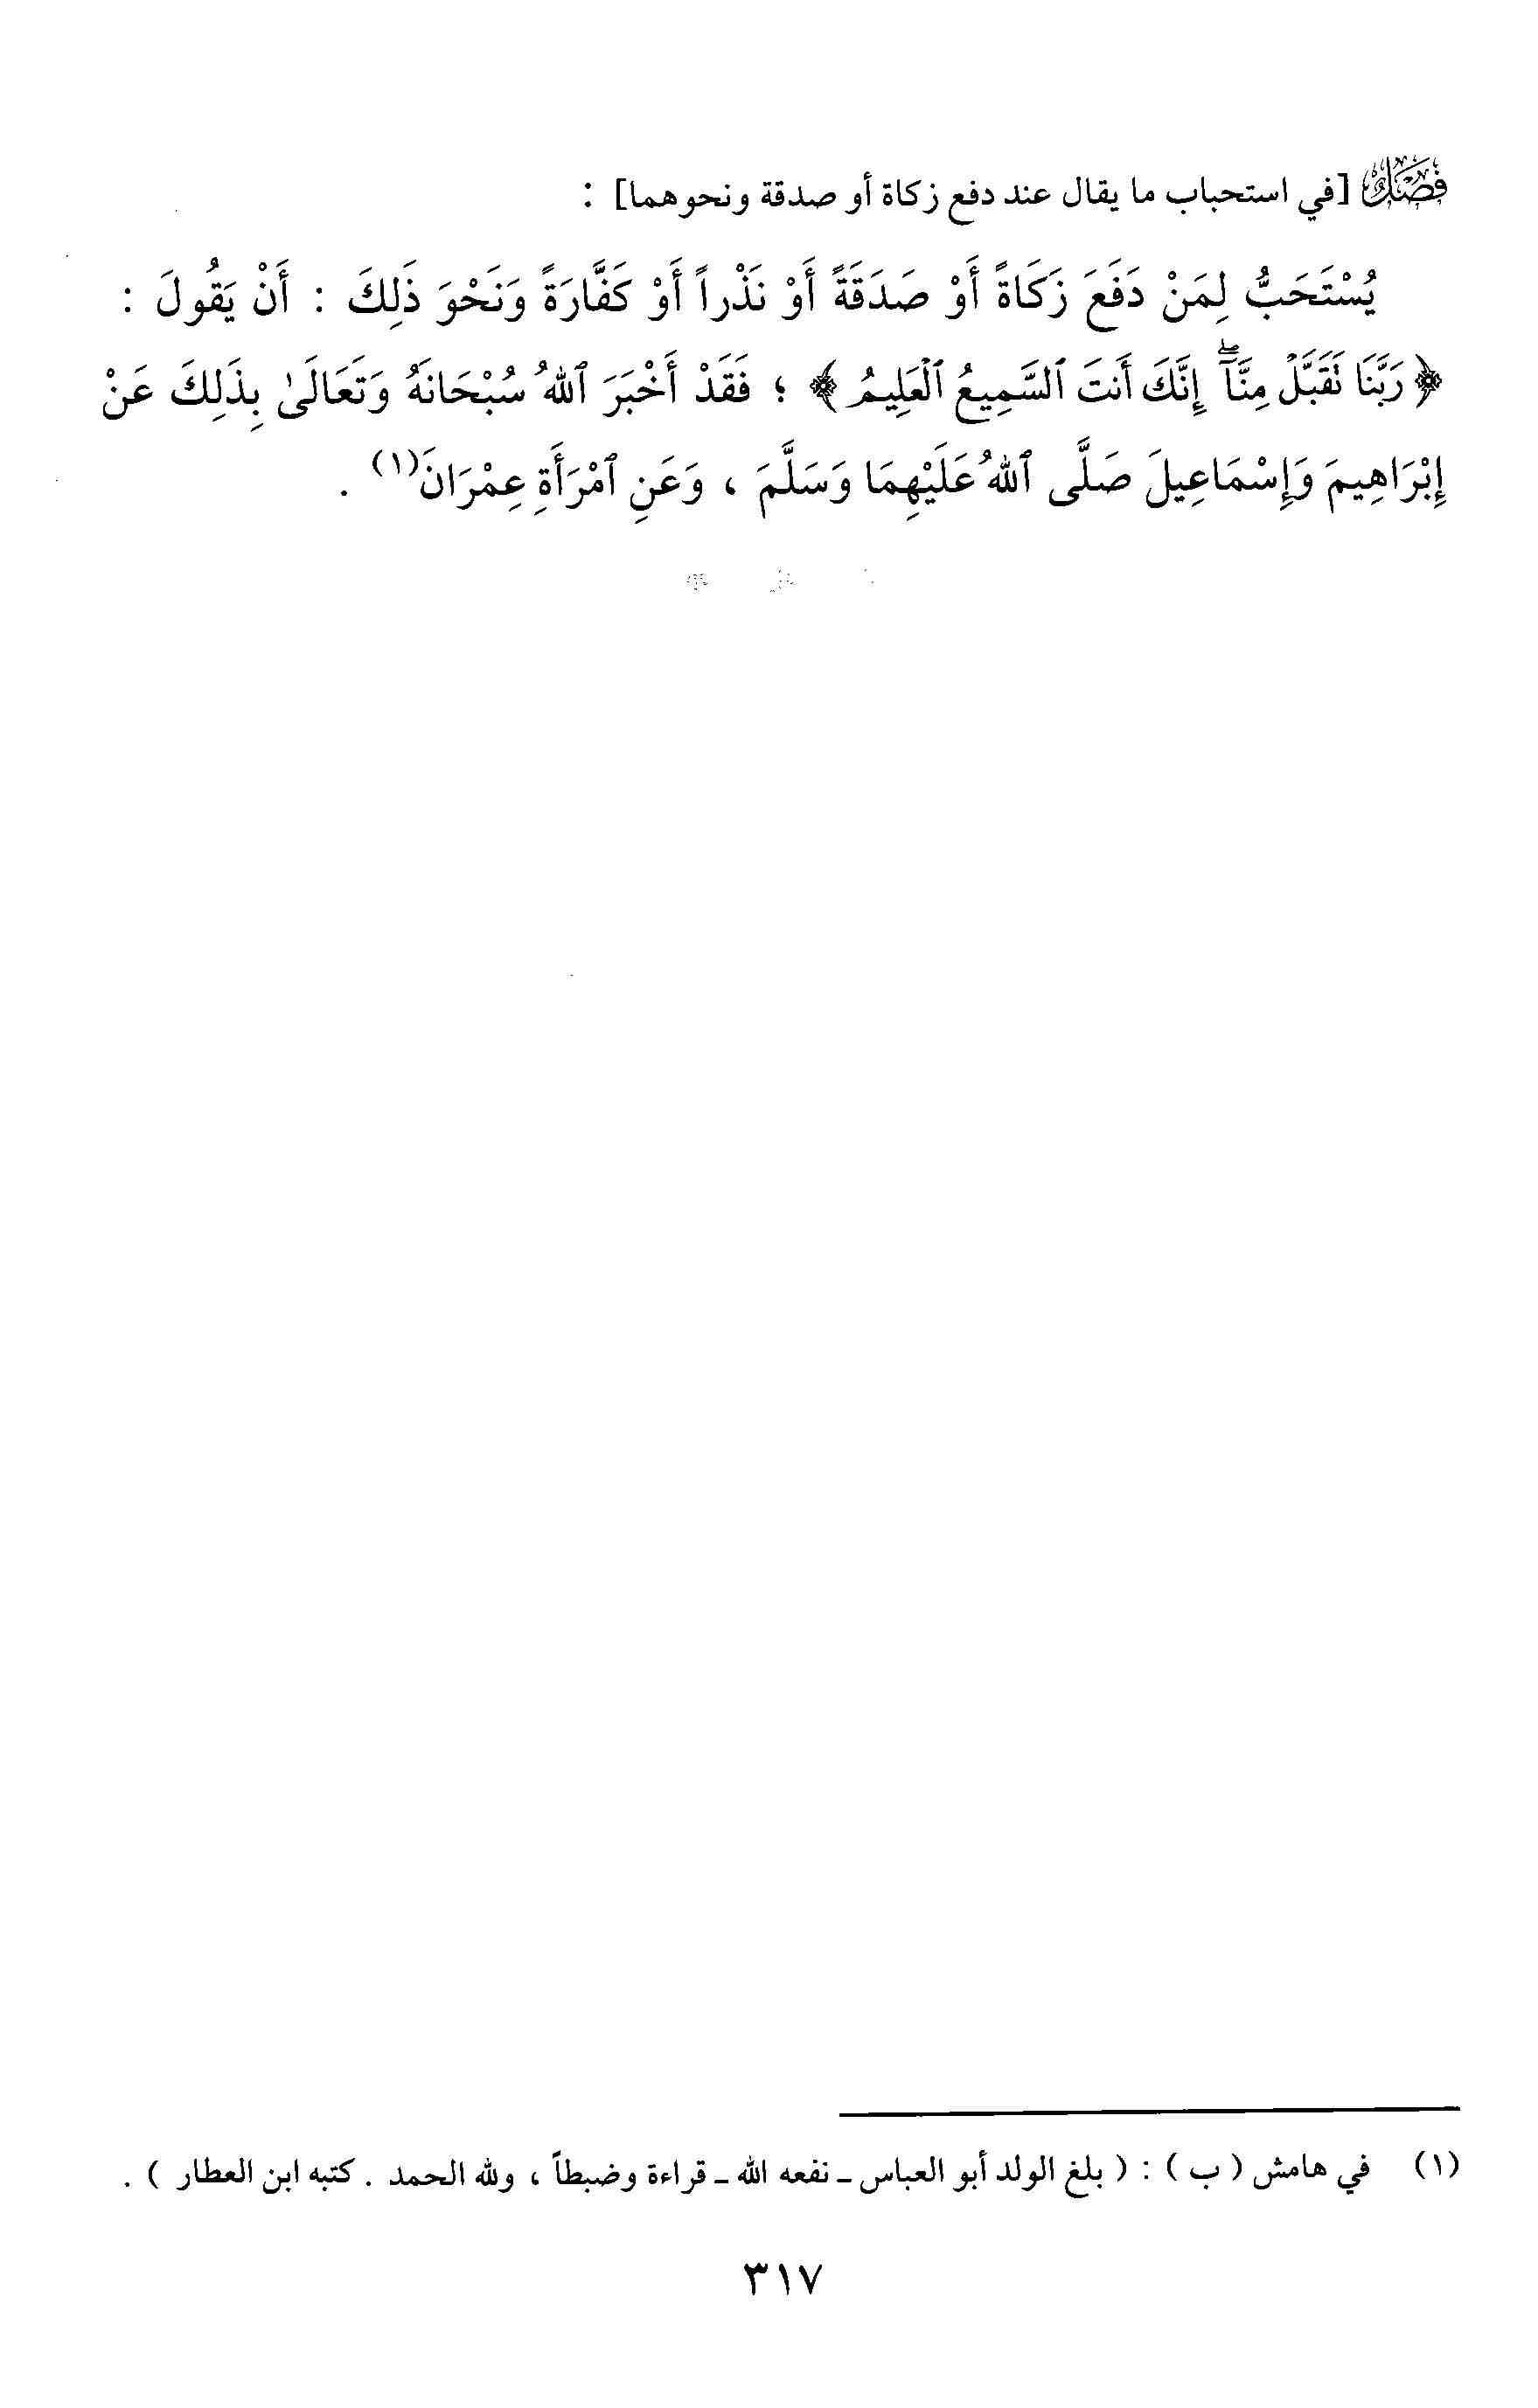 فصل [في استحباب ما يقال عند دفع زكاة أو صدقة ونحوهما] :
يُسْتَحَبُّ لِمَنْ دَفَعَ زَكَاةً أَوْ صَدَقَةً أَوْ نَذْراً أَوْ كَفَّارَةً وَنَحْوَ ذَلِكَ : أَنْ يَقُولَ :
﴿ رَبَّنَا تَقَبَّلْ مِنَّآ ۖ إِنَّكَ أَنتَ ٱلسَّمِيعُ ٱلْعَلِيمُ ﴾ ؛ فَقَدْ أَخْبَرَ ٱللهُ سُبْحَانَهُ وَتَعَالَىٰ بِذَلِكَ عَنْ
إِبْرَاهِيمَ وَإِسْمَاعِيلَ صَلَّى ٱللهُ عَلَيْهِمَا وَسَلَّمَ ، وَعَنِ ٱمْرَأَةِ عِمْرَانَ(١) .
(١) في هامش ( ب ) : ( بلغ الولد أبو العباس ـ نفعه الله ـ قراءة وضبطاً ، ولله الحمد . كتبه ابن العطار ) .
٣١٧